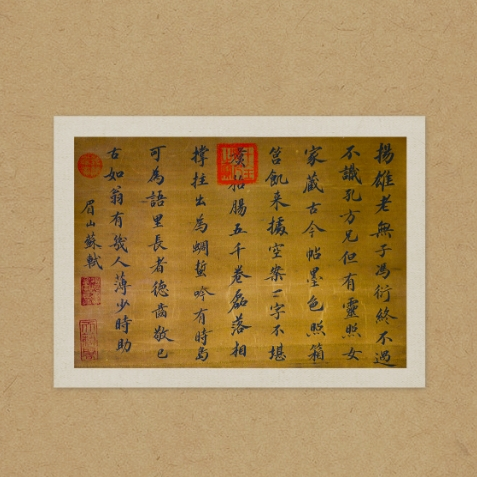 揚雄老無子馮衍終不遇
不識孔方兄但有靈照女
家藏古今帖墨色照箱
筥飢来據空案字不堪
枯腸五千卷磊落相
撐拄出為蜩蛩吟有時島
可為語里長者德齒敬已
古如翁有幾人薄少時助
眉山蘇軾